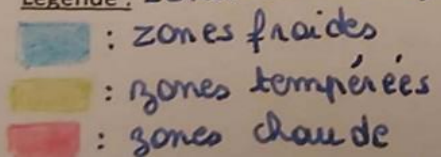 Légende :
: zones froides
: zones tempérées
: zones chaude